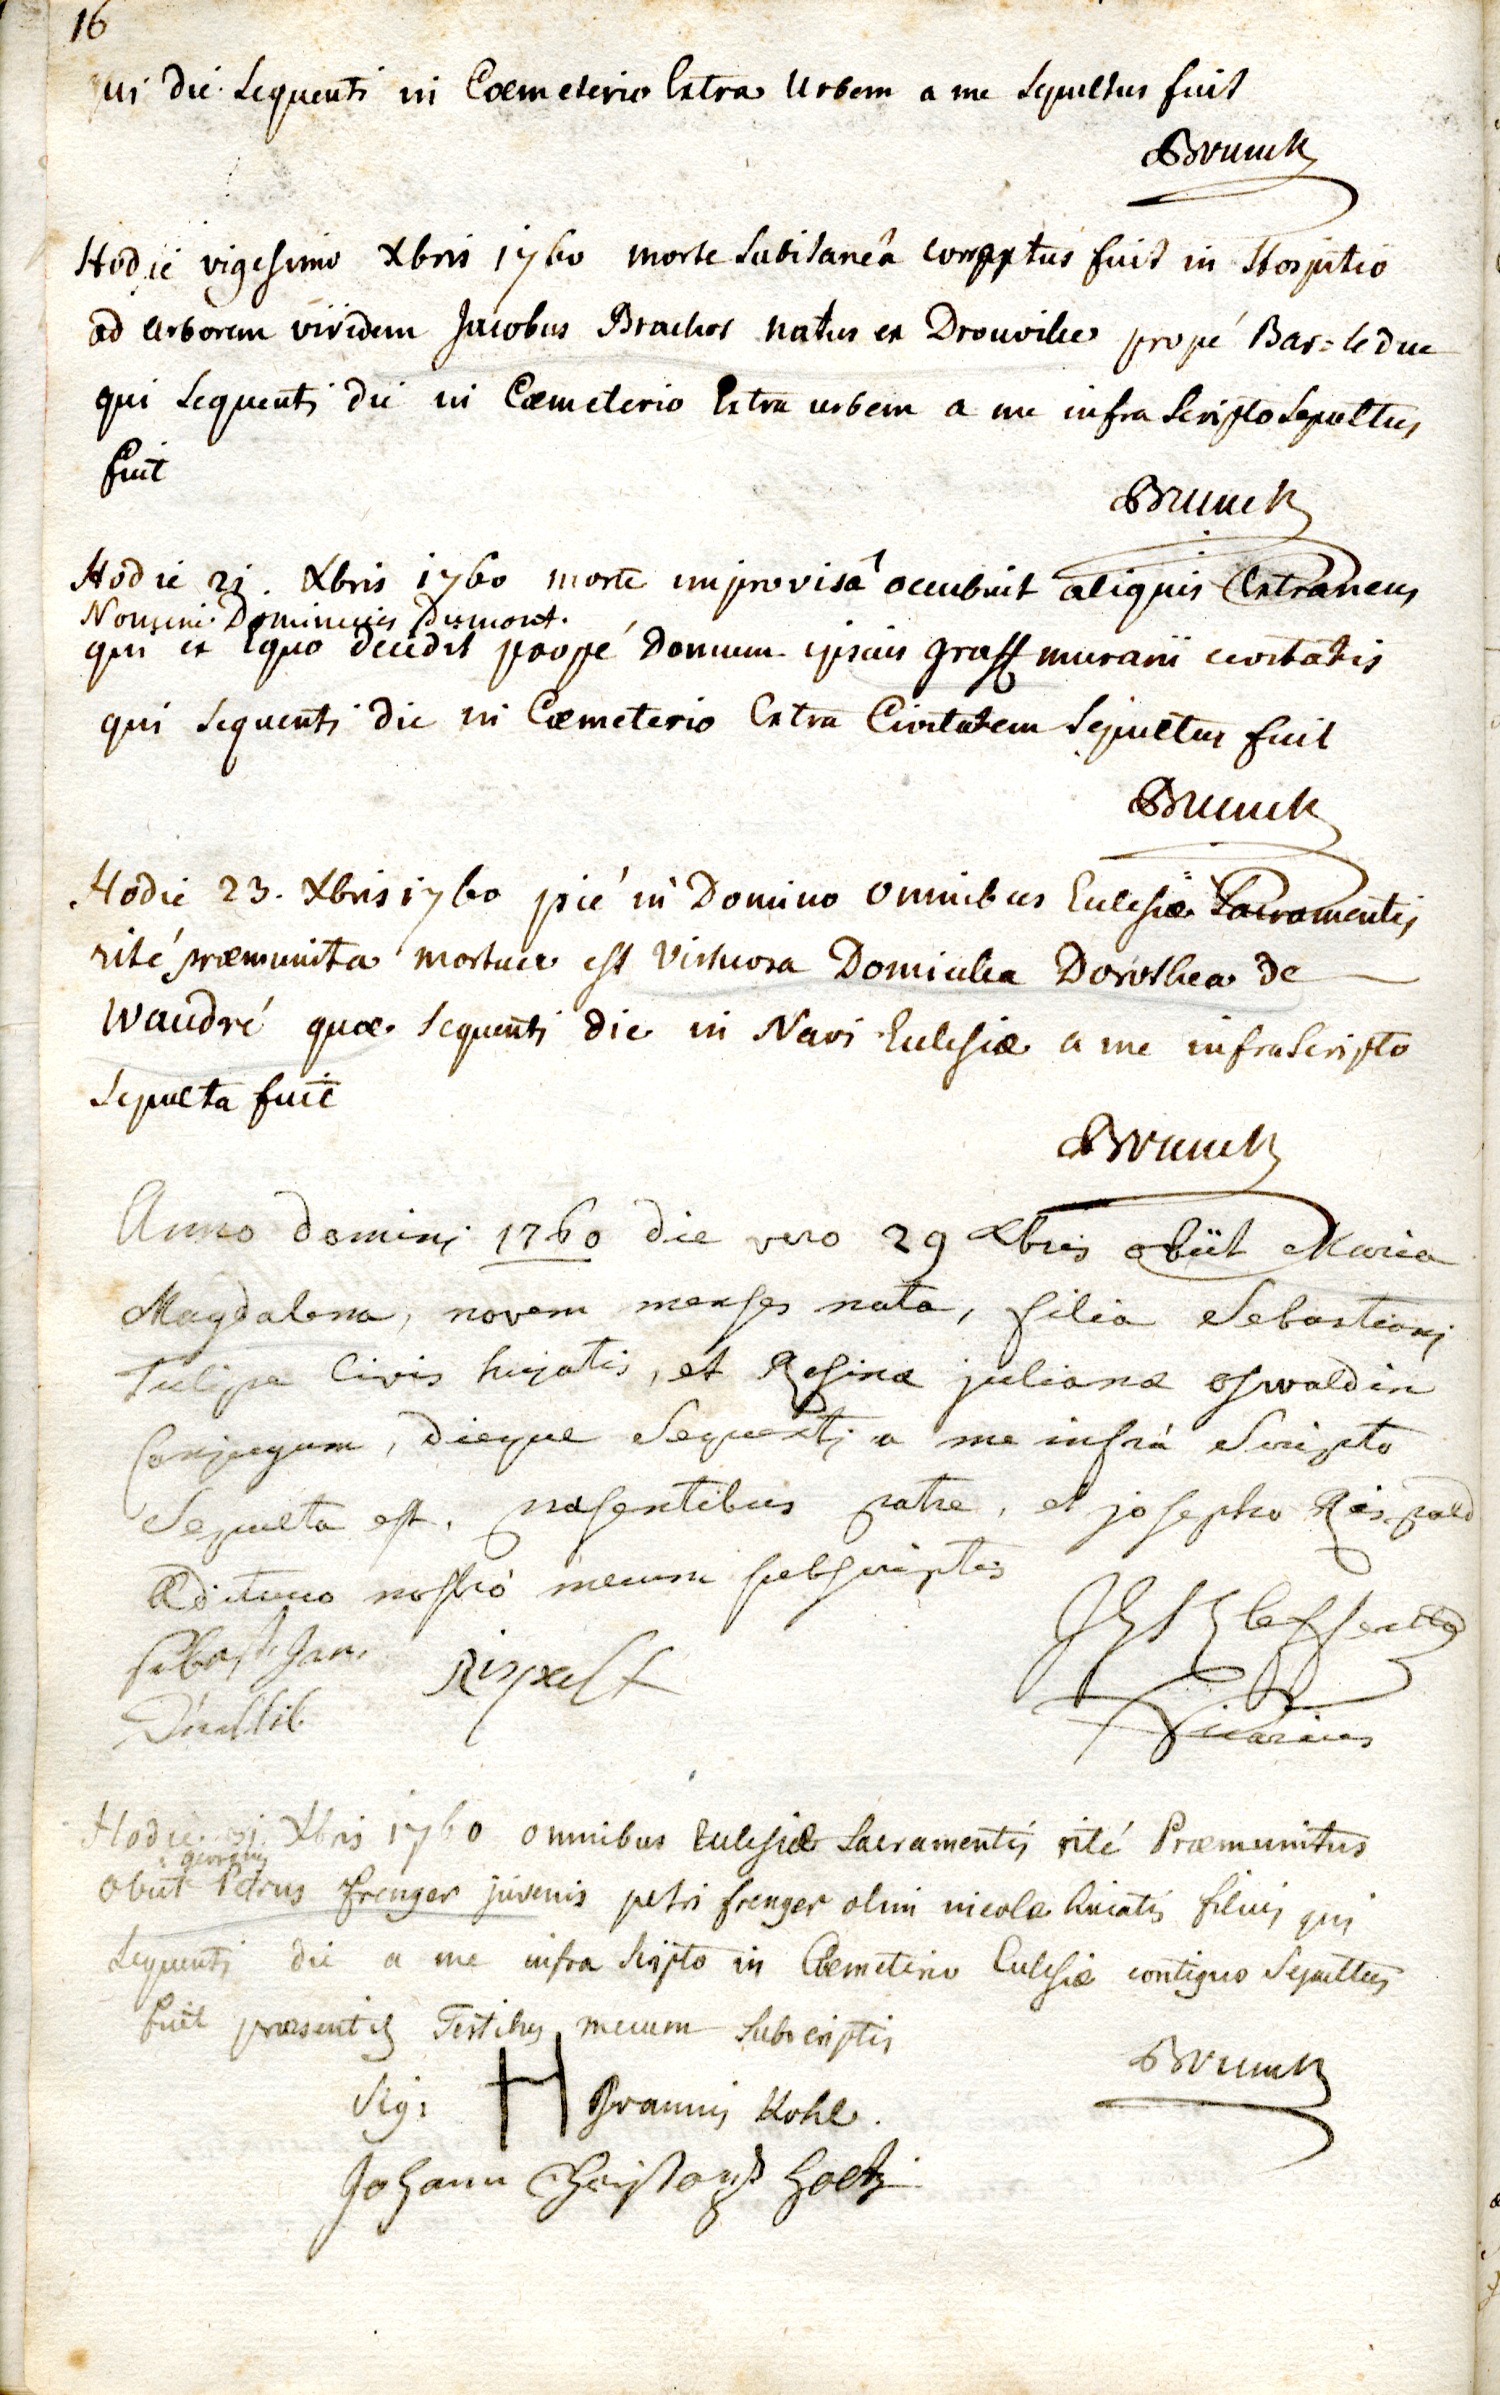 16
qui die sequenti in Coemeterio Extra Urbem a me sepultus fuit
Brunck
Hodie vigesimo Xbris 1760 morte subitaneâ correptus fuit in Hospitio
ad arborem viridem Jacobus Brachot natus ex Drouville propé Bar=leduc
qui sequenti die in Cœmeterio Extra urbem a me infra scripto sepultus
fuit
Brunck
Hodie 21. Xbris 1760 morte improvisâ occubuit aliquis Extraneus
Nomine Dominicus Dumont.
qui ex Equo decidit propé Domum ipsius graff murarii civitatis
qui sequenti die in Cœmeterio Extra Civitatem sepultus fuit
Brunck
Hodie 23. Xbris 1760 pié in Domino omnibus Ecclesiæ Sacramentis
rité præmunita mortua est virtuosa Domicella Dorothea de
Waudré quæ sequenti die in Navi Ecclesiæ a me infrascripto
sepulta fuit
Brunck
Anno domini 1760 die vero 29 Xbris obiit Maria
Magdalena, novem menses nata, filia Sebastiani
Tulipe Civis hujatis, et Reginæ julianæ oswaldin
Conjugum, dieque sequenti a me infrà scripto
Sepulta est, præsentibus patre, et josepho Rispald
ædituo nostrò mecum subscriptis
Rispalt
Vicarius
Hodie 31 Xbris 1760 omnibus Ecclesiæ Sacramentis rité Præmunitus
georgius
obiit Petrus frenger juvenis petri frenger olim incolæ huiatis filius qui
sequenti die a me infra scripto in Cœmeterio Ecclesiæ contiguo Sepultus
fuit præsentib9 Testibus mecum subscriptis
Brunck
Sig: H Joannis Kohl.
Johann Christoph Goetz